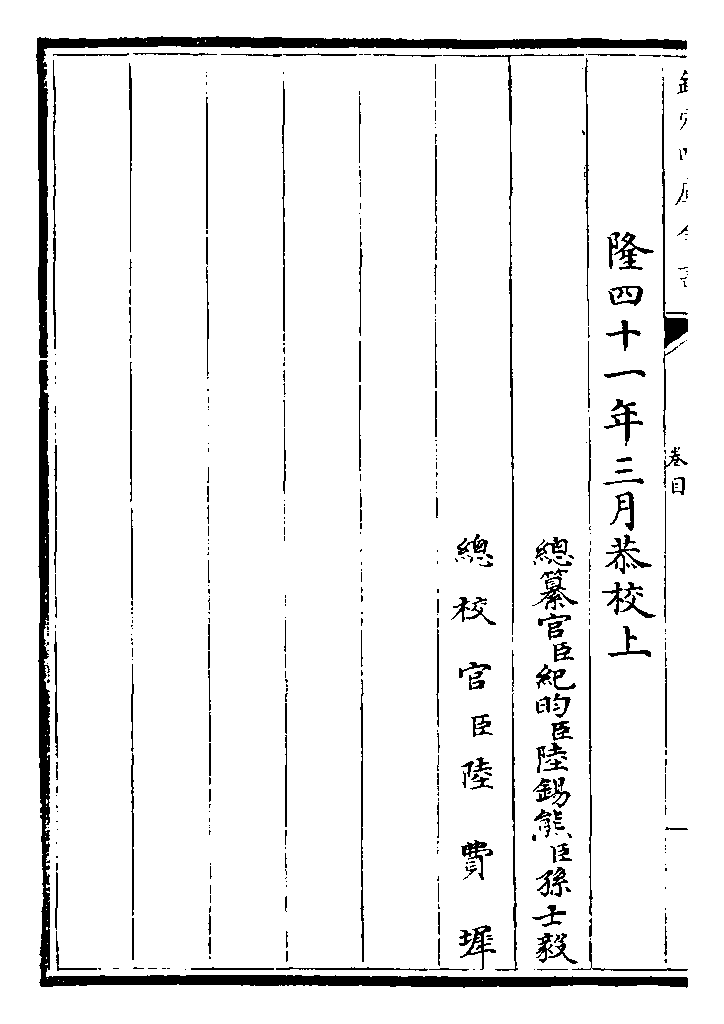 欽定四庫全書
卷目
隆四十一年三月恭校上
總纂官臣紀昀臣陸錫熊臣孫士毅
總校官臣陸費墀